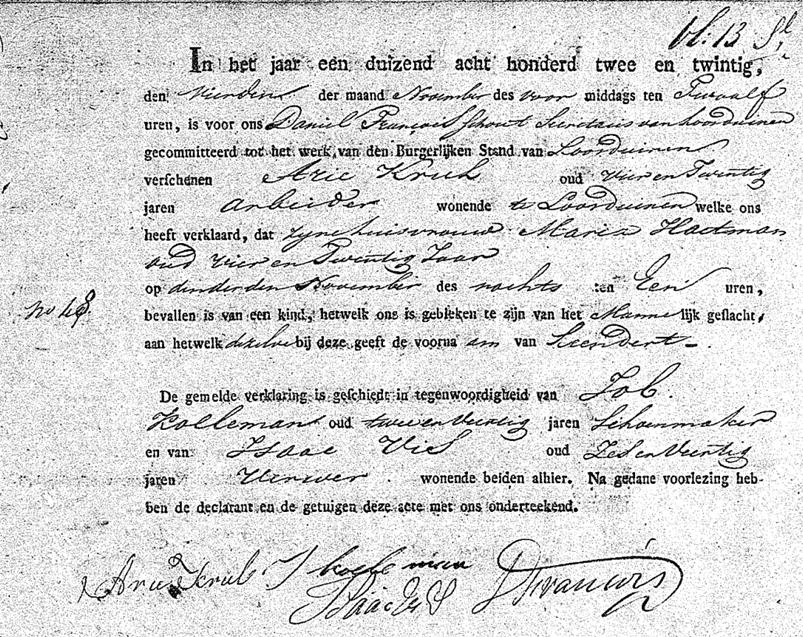 bl: 13 S
In het jaar een duizend acht honderd twee en twintig,
den Vierden der maand November des voor middags ten Twaalf
uren, is voor ons Daniel François Schout Secretaris van Loosduinen
gecommitteerd tot het werk van den Burgerlijken Stand van Loosduinen
verschenen Arie Kruk oud vier en Twintig
jaren arbeider wonende te Loosduinen welke ons
heeft verklaard, dat zyne huisvrouw Maria Hartman
oud vier en Twintig Jaar
op den derden November des nachts ten Een uren,
bevallen is van een kind, hetwelk ons is gebleken te zijn van het Manne lijk geslacht,
no 48.
aan hetwelk dezelve bij deze geeft de voorna am van Leendert
De gemelde verklaring is geschiedt in tegenwoordigheid van Job
Kolleman oud twee en Veertig jaren Schoenmaker
en van Isaac Vis oud Zes en Veertig
jaren Verwer wonende beiden alhier. Na gedane voorlezing heb-
ben de declarant en de getuigen deze acte met ons onderteekend.
Arie Kruk J kolleman
Isaac Vis DFrançois